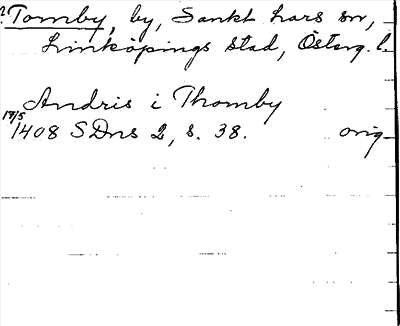 ? Tomby, by, Sankt Lars sn,
Linköpings stad, Österg. l.
Andris i Thomby
17/5
1408 SDns 2, s. 38. orig.